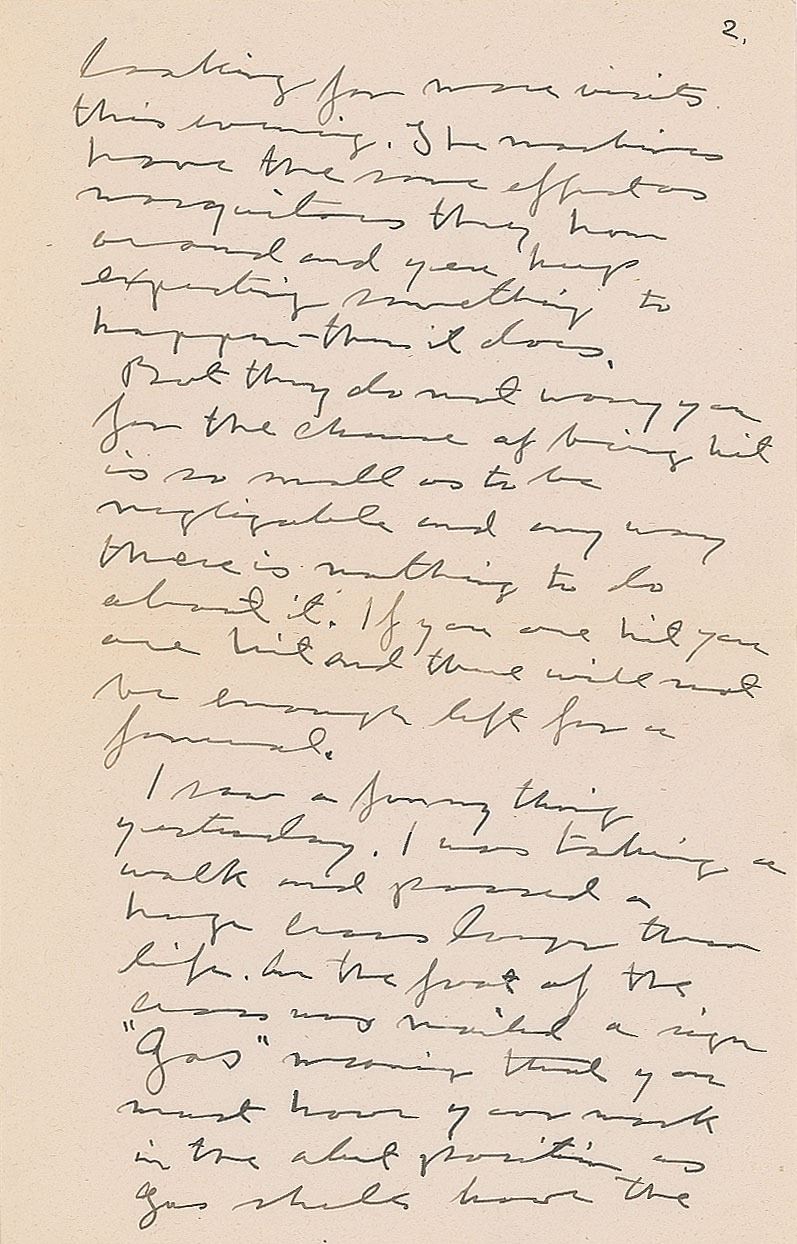 2.
looking for more visits
this evening. The machines
have the same effect as
mosquitoes they hum
around and you keep
expecting something to
happen - then it does.
But they do not worry you
for the chance of being hit
is so small as to be
negligable and any way
there is nothing to do
about it. If you are hit you
are hit and there will not
be enough left for a
funeral.
I saw a funny thing
yesterday. I was taking a
walk and passed a
huge cross larger than
life. On the foot of the
cross was nailed a sign
"Gas" meaning that you
must have your mask
in the alert position as
gas shells have the